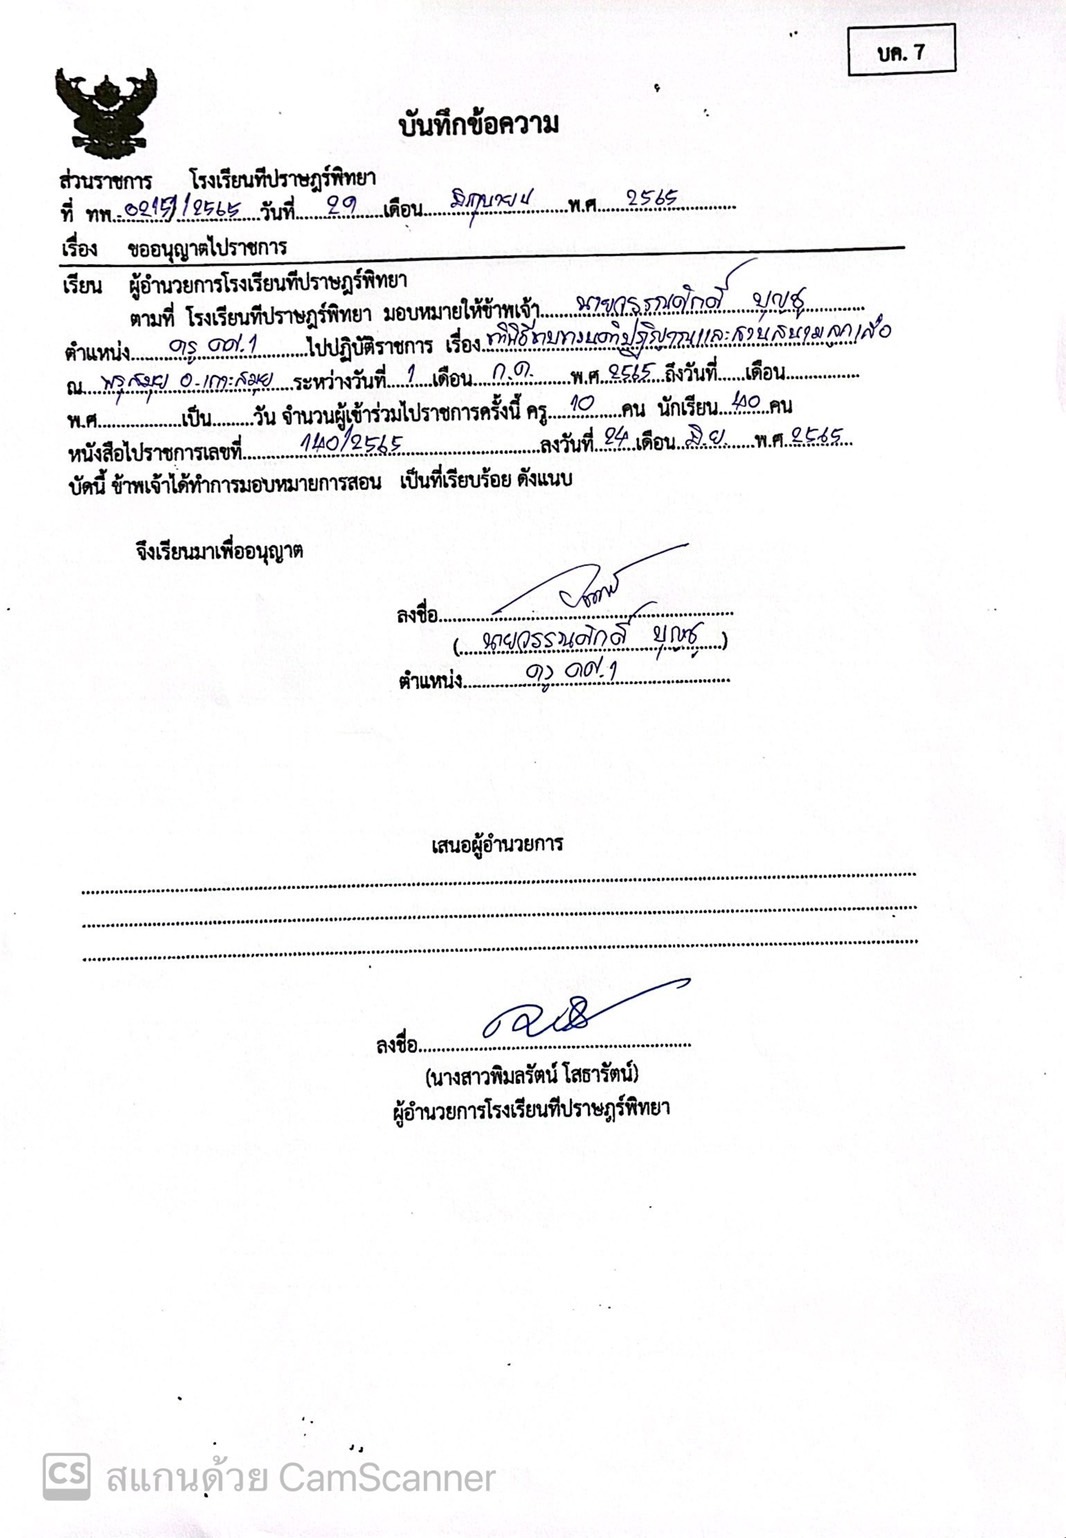 บค. 7
บันทึกข้อความ
ส่วนราชการ โรงเรียนทีปราษฎร์พิทยา
ที่ ทพ...../2565 วันที่ 29 เดือน มิถุนายน พ.ศ. 2565
เรื่อง ขออนุญาตไปราชการ
เรียน ผู้อำนวยการโรงเรียนทีปราษฎร์พิทยา
ตามที่ โรงเรียนทีปราษฎร์พิทยา มอบหมายให้ข้าพเจ้า นายวรรณศักดิ์ บุญชู
ตำแหน่ง ครู คศ.1 ไปปฏิบัติราชการ เรื่อง ทำพิธีทบทวนคำปฏิญาณและสวนสนามลูกเสือ
ณ พรุสมุย อ.เกาะสมุย ระหว่างวันที่ 1 เดือน ก.ค. พ.ศ. 2565 ถึงวันที่......เดือน...............
พ.ศ..................เป็น.........วัน จำนวนผู้เข้าร่วมไปราชการครั้งนี้ ครู 10 คน นักเรียน 40 คน
หนังสือไปราชการเลขที่ 140/2565 ลงวันที่ 24 เดือน มิ.ย. พ.ศ. 2565
บัดนี้ ข้าพเจ้าได้ทำการมอบหมายการสอน เป็นที่เรียบร้อย ดังแนบ
จึงเรียนมาเพื่ออนุญาต
ลงชื่อ
(นายวรรณศักดิ์ บุญชู)
ตำแหน่ง ครู คศ.1
เสนอผู้อำนวยการ
ลงชื่อ
(นางสาวพิมลรัตน์ โสธารัตน์)
ผู้อำนวยการโรงเรียนทีปราษฎร์พิทยา
CS สแกนด้วย CamScanner